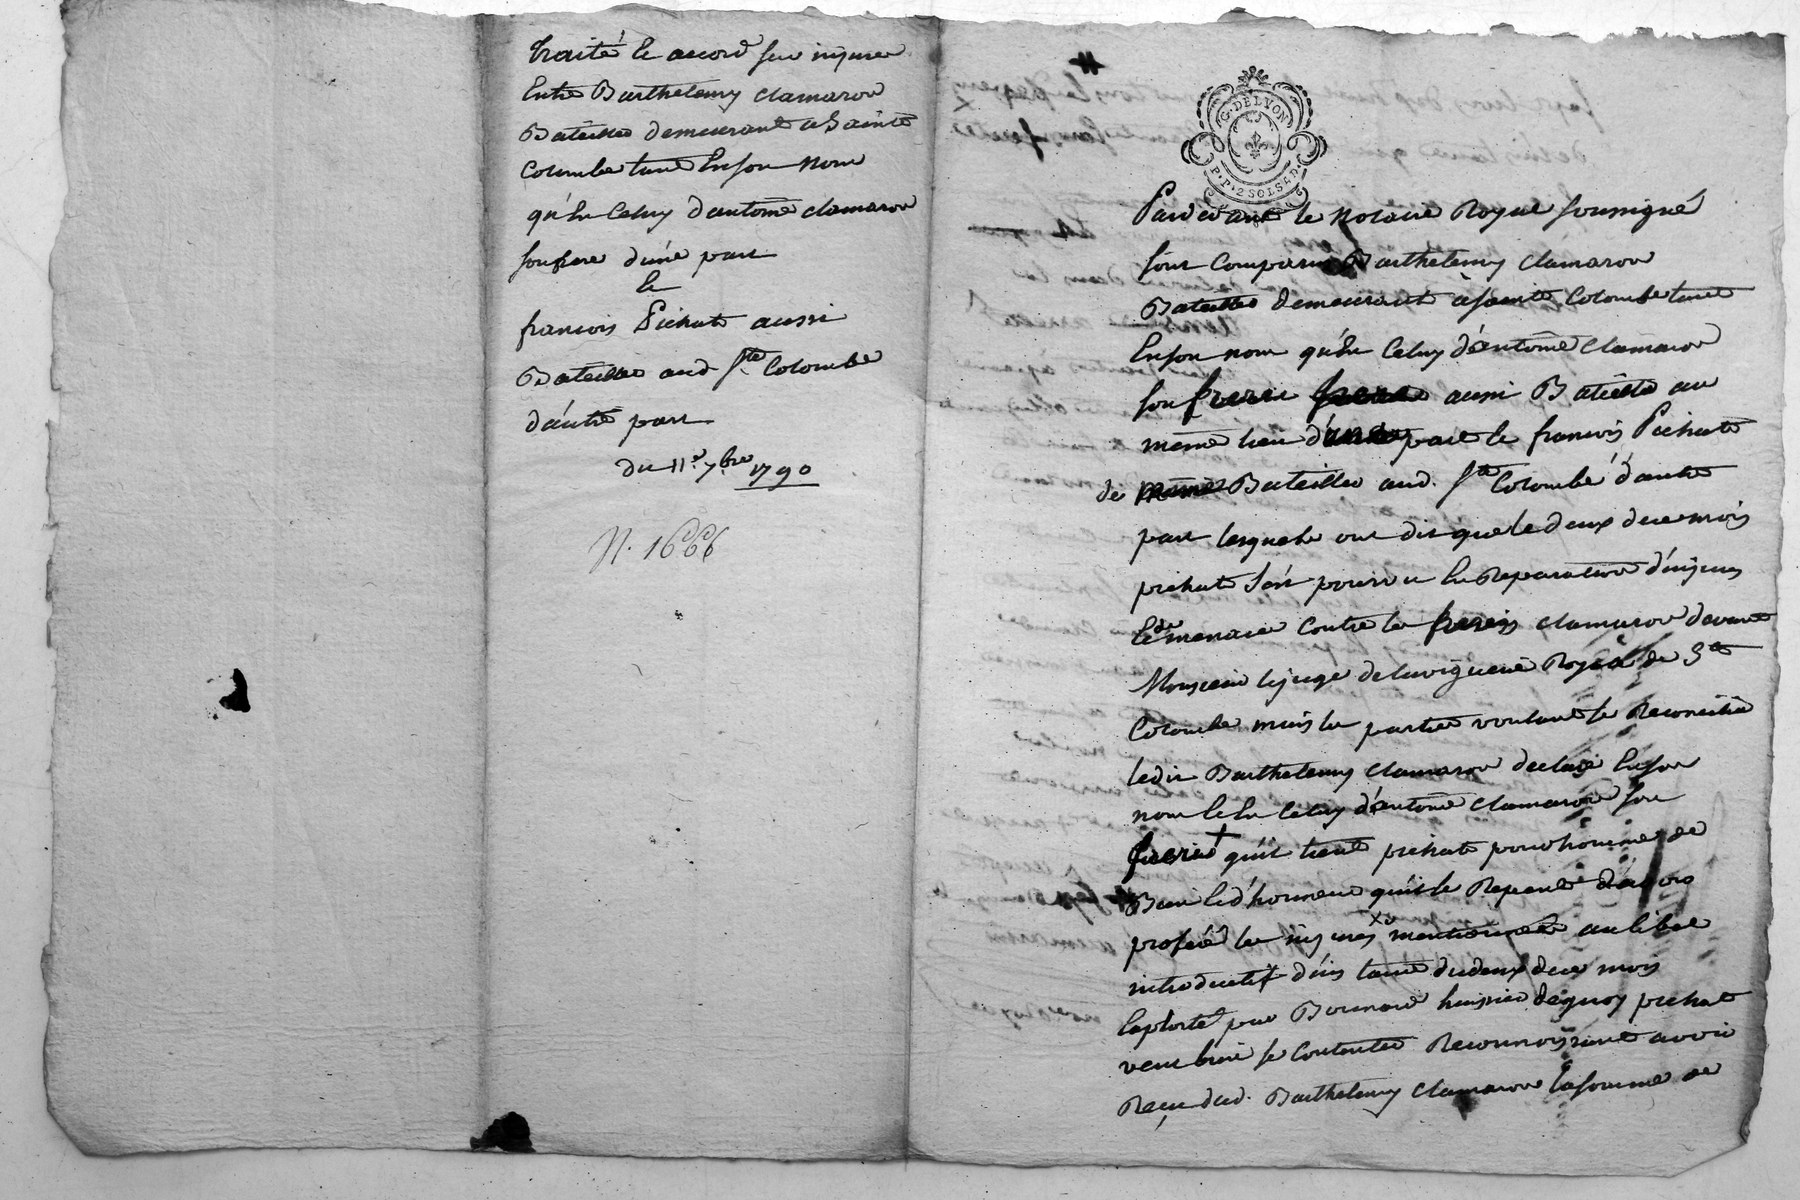 traité et accord sur injures
Entre Barthelemy clamaron
Batellier demeurant a Sainte
Colombe tant En son nom
qu'En Celuy d'antoine clamaron
son frere d'une part
Et
francois Pichat aussi
Batellier aud. Ste Colombe
d'autre part
du 11e 7bre 1790
N. 1666
G. DE LYON
P. P. 2 SOLS 4 D.
Pardevant le Notaire Royal soussigné
sont Comparus Barthelemy clamaron
Batellier demeurant à sainte Colombe tant
En son nom qu'En Celuy d'antoine clamaron
son frere aussi Batellier au
même lieu d'une part et francois Pichat
de même Batellier aud. Ste Colombe d'autre
part lesquels ont dit que le deux de ce mois
pichat s'est pourvu En Reparation d'injures
Et de menaces contre les freres clamaron devant
Monsieur le juge de la viguerie Royale de Ste
Colombe mais les parties voulant se Reconcilier
ledit Barthelemy clamaron declare En son
nom Et En Celuy d'antoine clamaron son
frere qu'il tient pichat pour homme de
Bien Et d'honneur qu'il se Repent d'avoir
proferé les injures mentionnées au libel
introductif d'instance du deux de ce mois
Exploité par huissier de quoy pichat
veut bien se Contenter Reconnoissant avoir
Reçu dud. Barthelemy clamaron la somme de